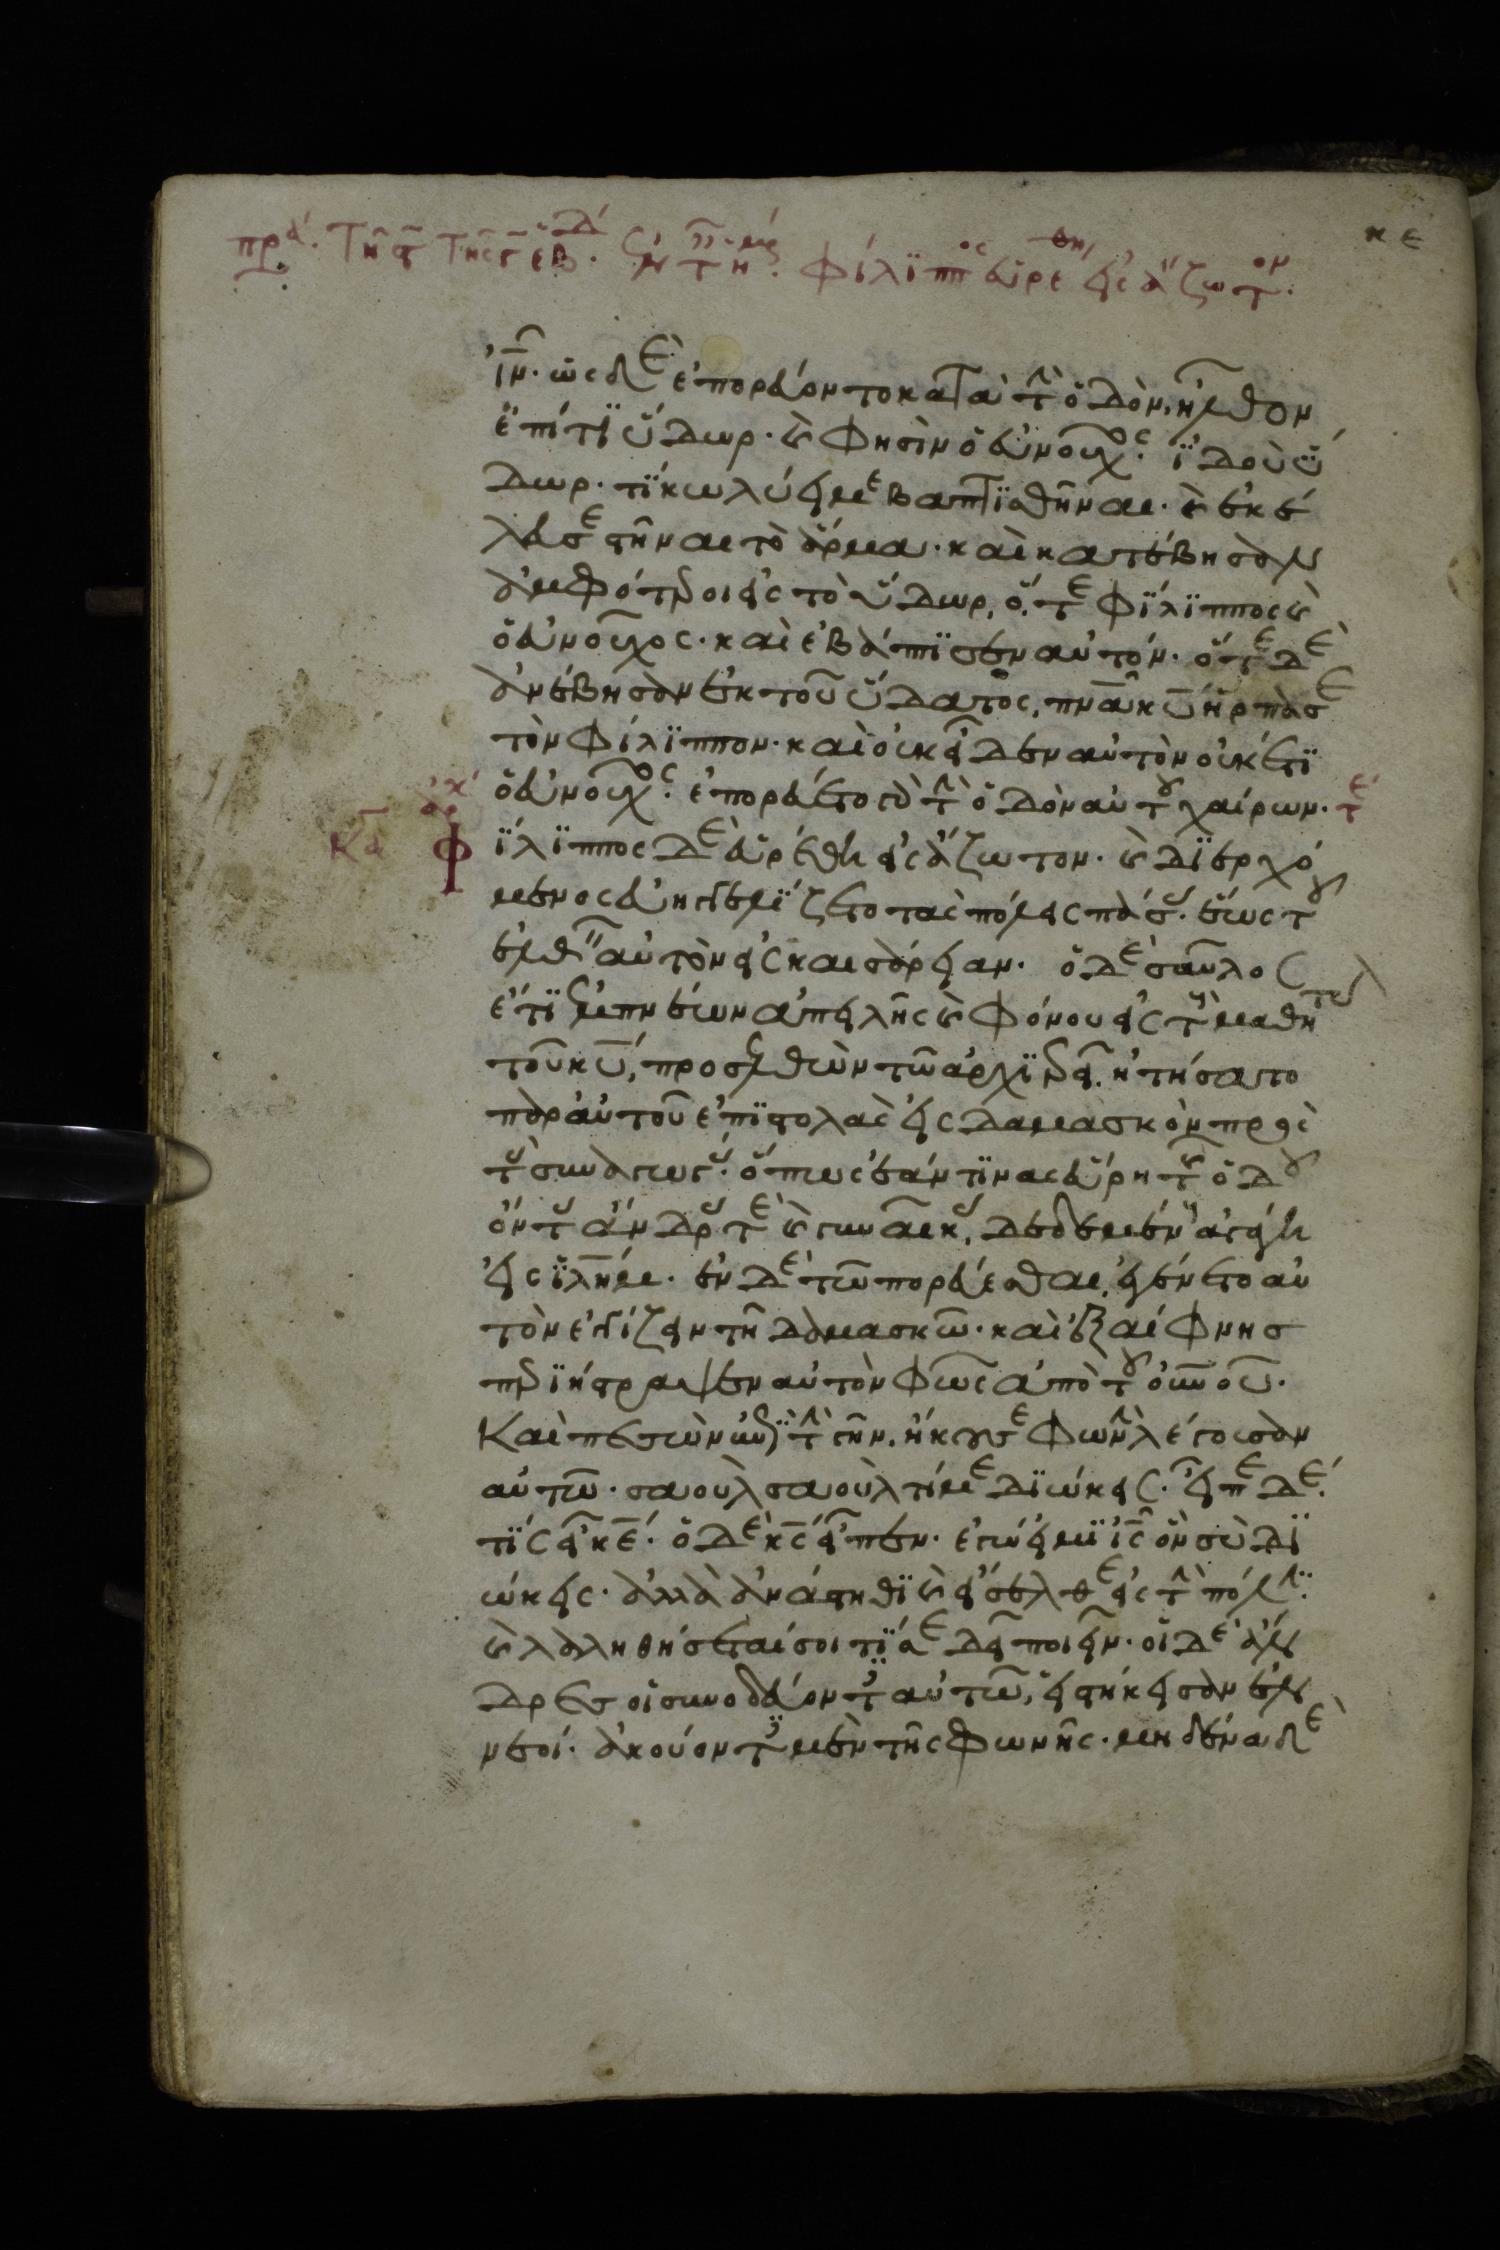 κε
Φίλϊππος εὑρέθη εἰς ἄζωτον.
ιν. ὡς δὲ ἐπορεύοντο κατὰ τὴν ὁδὸν, ἦλθον
ἐπί τϊ ὕδωρ. καὶ φησὶν ὁ εὐνοῦχος. ἰδοὺ ὕ
δωρ. τί κωλύει με βαπτϊσθῆναι. καὶ ἐκέ
λευσε στῆναι τὸ ἅρμα. καὶ κατέβησαν
ἀμφότεροι εἰς τὸ ὕδωρ, ὅ, τε Φϊλϊππος καὶ
ὁ εὐνοῦχος. καὶ ἐβάπτϊσεν αὐτόν. ὅτε δὲ
ἀνέβησαν ἐκ τοῦ ὕδατος, πνᾶ κῡ ἥρπασε
τὸν Φίλϊππον. καὶ οὐκ εἶδεν αὐτὸν οὐκέτϊ
ὁ εὐνοῦχος. ἐπορεύετο γὰρ τὴν ὁδὸν αὐτοῦ χαίρων. τέ
Φϊλϊππος δὲ εὑρέθη εἰς ἄζωτον. καὶ δϊερχό
μενος εὐηγγελϊζετο τὰς πόλεις πάσας. ἕως τοῦ
ἐλθεῖν αὐτὸν εἰς καισάρειαν. ὁ δὲ σαῦλος
ἔτϊ ἐμπνέων ἀπειλῆς καὶ φόνου εἰς τοὺς μαθητὰς
τοῦ κῡ, προσελθὼν τῶ ἀρχϊερεῖ. ἠτήσατο
παρ' αὐτοῦ ἐπϊστολὰς εἰς δαμασκὸν πρὸς
τὰς συναγωγάς. ὅπως ἐάν τϊνας εὕρη τῆς ὁδοῦ
ὄντας ἄνδρας τε καὶ γυναῖκας, δεδεμένους ἀγάγη
εἰς ἱλήμ. ἐν δὲ τῶ πορεύεσθαι, ἐγένετο αὐ
τὸν ἐγγίζειν τῆ δαμασκῶ. καὶ ἐξαίφνης
περϊήστραψεν αὐτὸν φῶς ἀπὸ τοῦ οὐνοῦ.
Καὶ πεσὼν ἐπὶ τὴν γῆν, ἤκουσε φωνὴν λέγουσαν
αὐτῶ. σαοὺλ σαοὺλ τί με δϊώκεις. εἶπε δέ.
τίς εἶ κέ. ὁ δὲ κς εἶπεν. ἐγώ εἰμϊ ις ὃν σὺ δϊ
ώκεις. ἀλλὰ ἀνάστηθϊ καὶ εἴσελθε εἰς τὴν πόλϊν.
καὶ λαληθήσεταί σοι τϊ σε δεῖ ποιεῖν. οἱ δὲ ἄν
δρες οἱ συνοδεύοντες αὐτῶ, εἱστήκεισαν ἐν
νεοί. ἀκούοντες μὲν τῆς φωνῆς. μηδένα δὲ